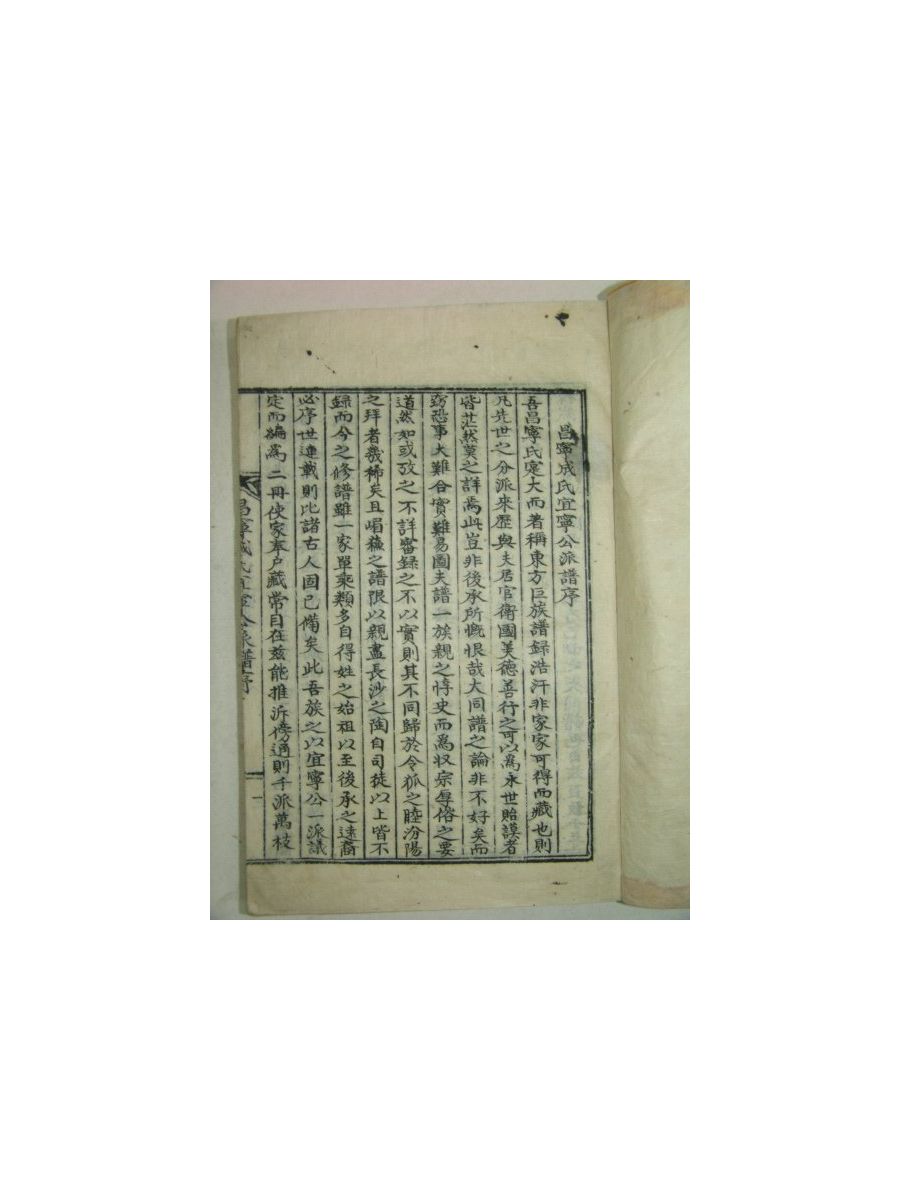 昌寧成氏宜寧公派譜序
吾昌寧氏寔大而著稱東方巨族譜録浩汗非家家可得而藏也則
凡先世之分派來歷與夫居官衛國美德善行之可以爲永世貽謨者
皆茫然莫之詳焉此豈非後承所慨恨哉大同譜之論非不好矣而
竊恐事大難合實難易圖夫譜一族親之惇史而爲収宗厚俗之要
道然如或攷之不詳審録之不以實則其不同歸於令狐之睦汾陽
之拜者幾稀矣且嵋蘓之譜限以親盡長沙之陶自司徒以上皆不
録而今之修譜雖一家單乘類多自得姓之始祖以至後承之遠裔
必序世連載則比諸古人固已備矣此吾族之以宜寧公一派議
定而編爲二冊使家奉户藏常目在兹能推泝傍通則千派萬枝
昌寧成氏宜寧公派譜序
一